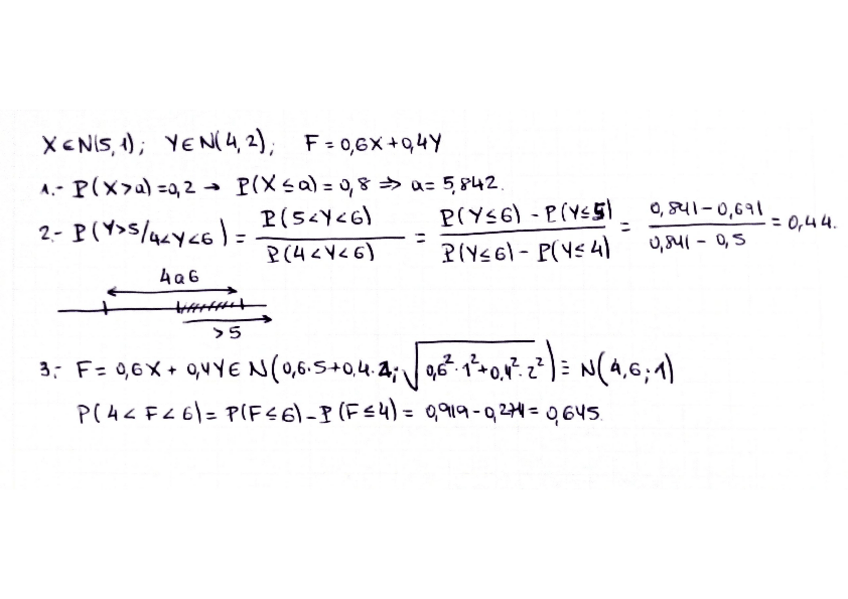 X∈N(5,1); Y∈N(4,2); F=0,6X+0,4Y
1.- P(X>a)=0,2 → P(X≤a)=0,8 ⇒ a=5,842.
2.- P(Y>5/4<Y<6) = P(5<Y<6)/P(4<Y<6) = (P(Y≤6)-P(Y≤5))/(P(Y≤6)-P(Y≤4)) = (0,841-0,691)/(0,841-0,5) = 0,44.
4 a 6
>5
3.- F=0,6X+0,4Y∈N(0,6·5+0,4·4; √(0,6²·1²+0,4²·2²)) ≡ N(4,6;1)
P(4<F<6)=P(F≤6)-P(F≤4)=0,919-0,274=0,645.